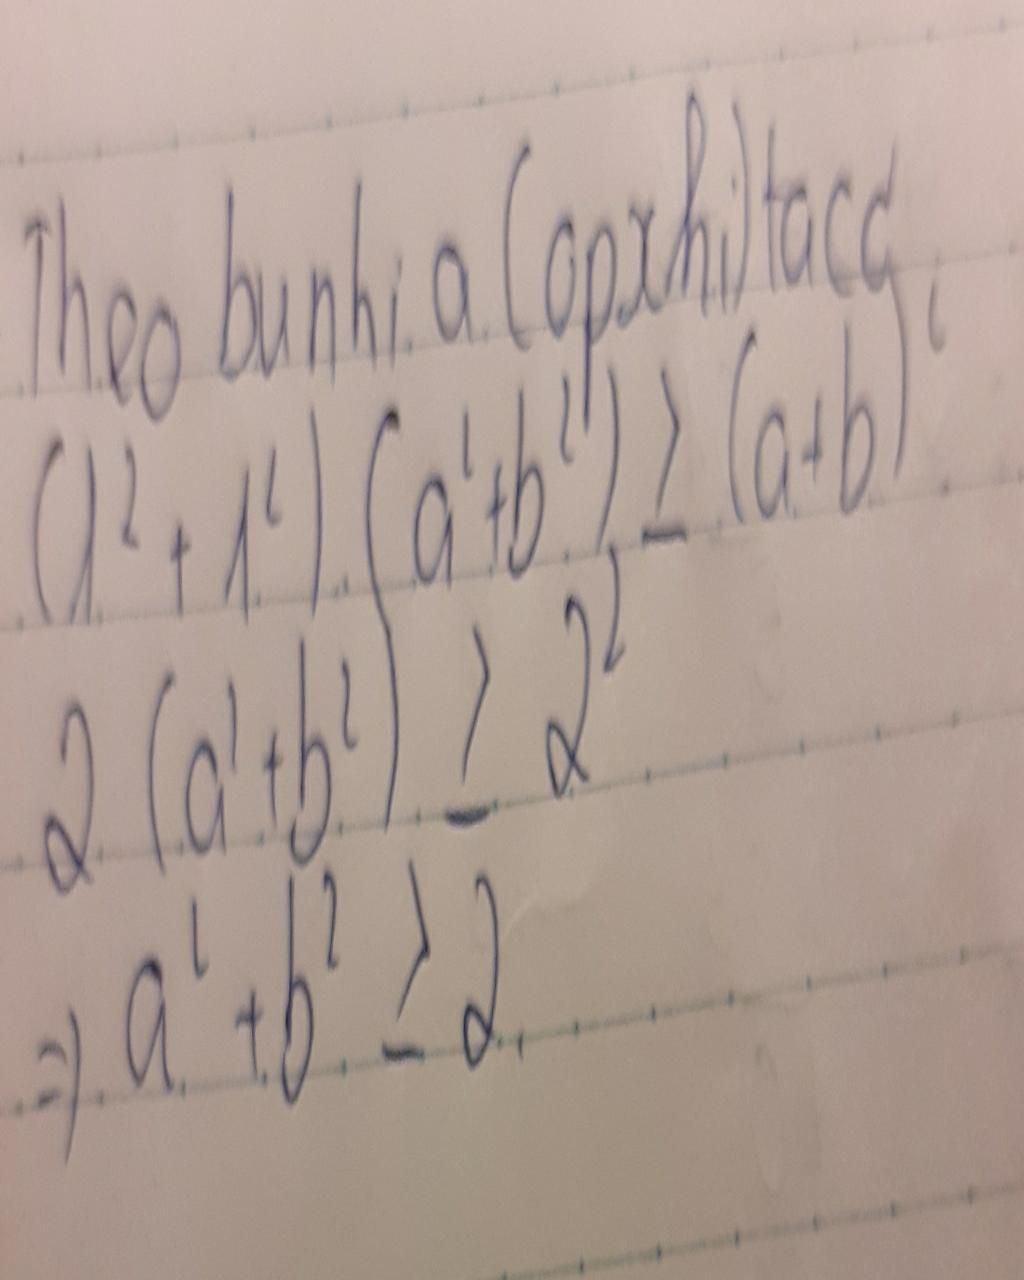 Theo bunhi a (opxki) ta có
(1² + 1²) . (a² + b²) ≥ (a+b)²
2 (a² + b²) ≥ 2²
⇒ a² + b² ≥ 2